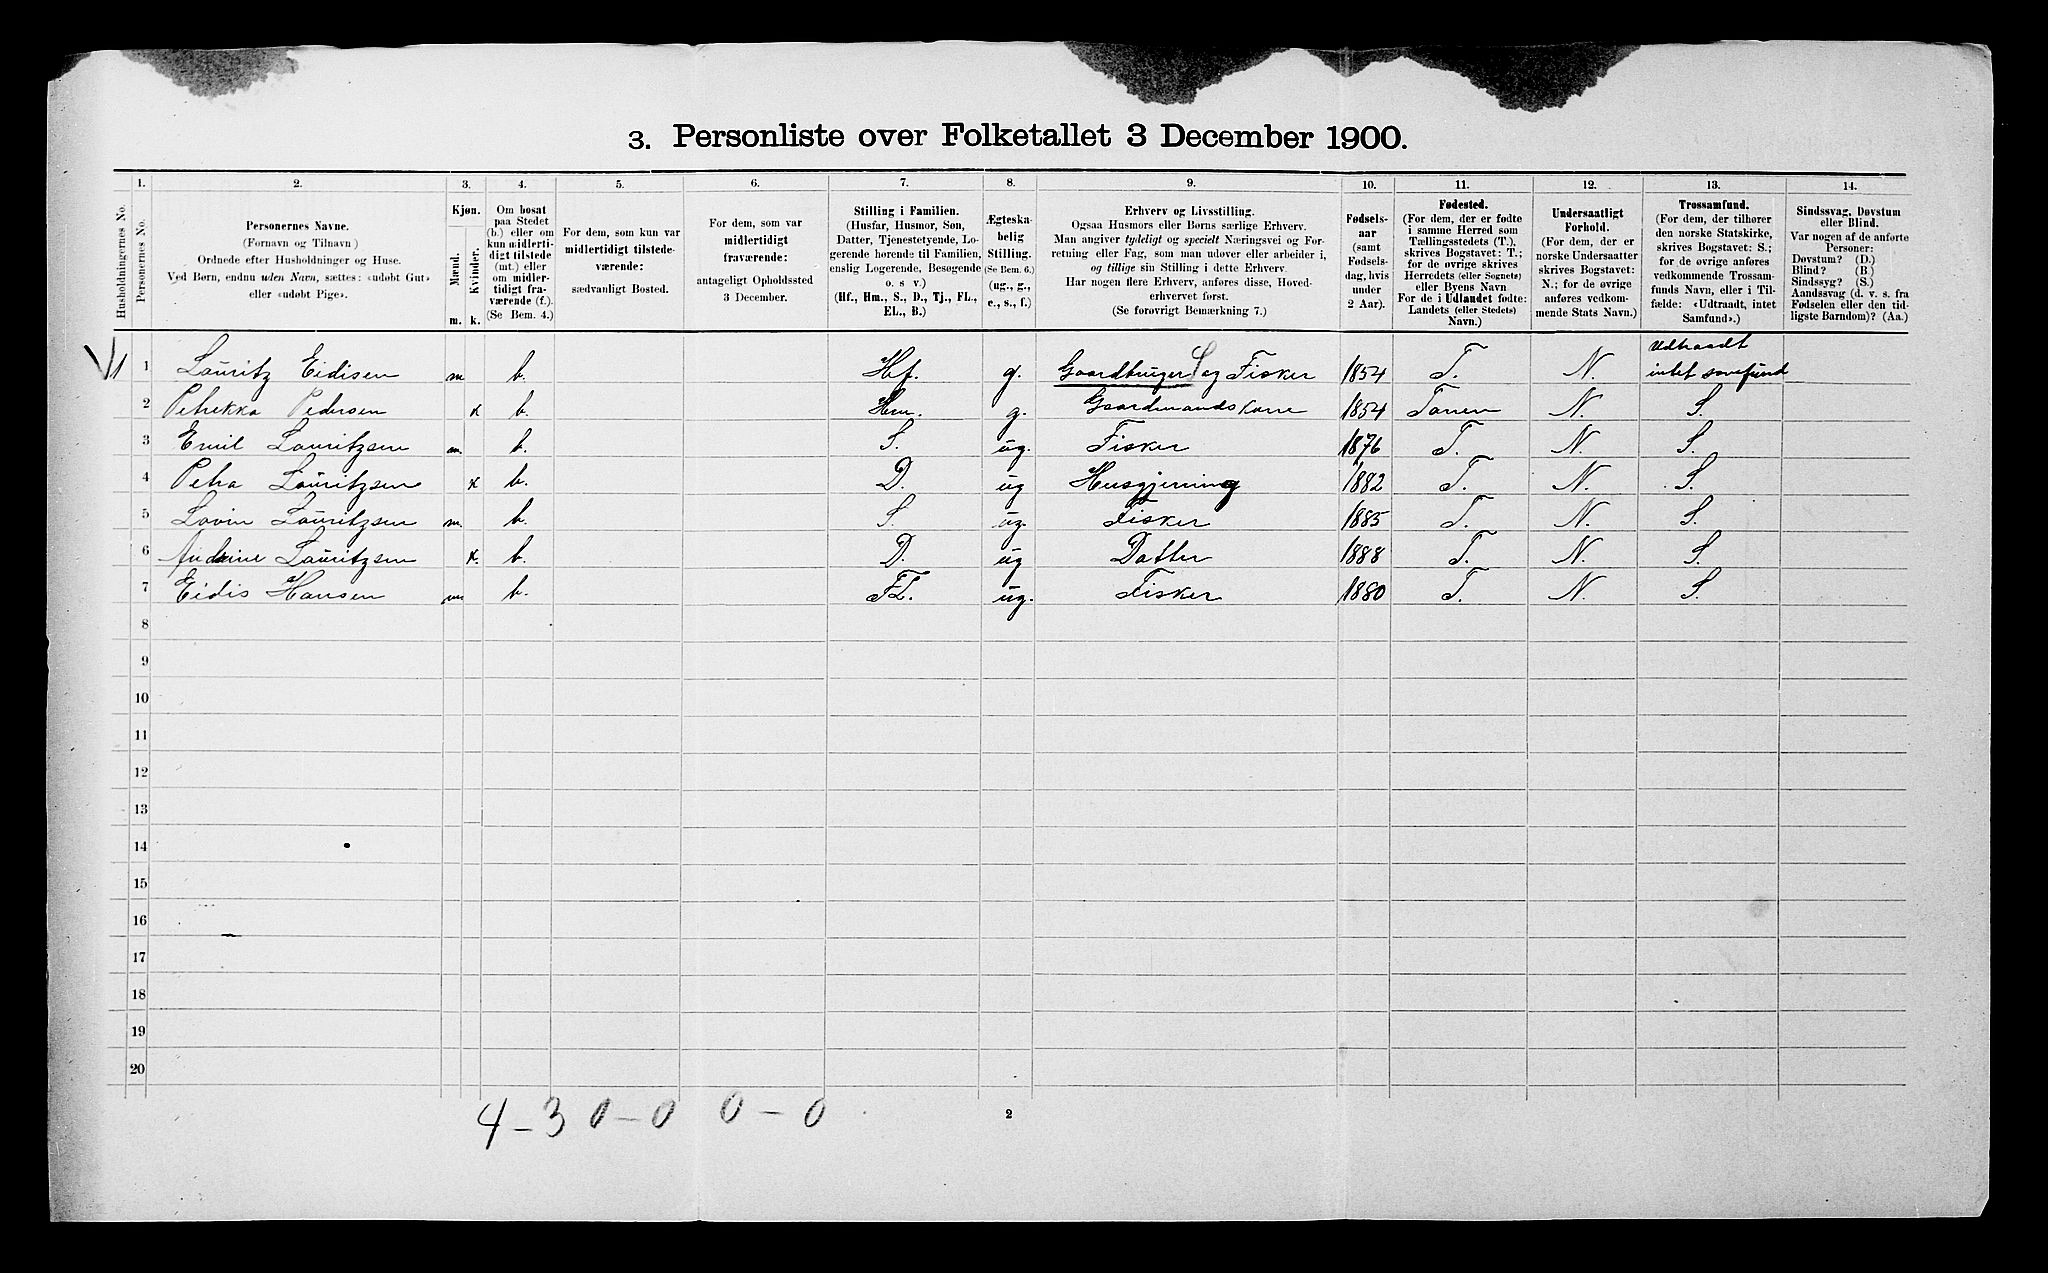 3. Personliste over Folketallet 3 December 1900.
1. 2. 3. 4. 5. 6. 7. 8. 9. 10. 11. 12. 13. 14.
Husholdningernes No.
Personernes No.
Personernes Navne.
(Fornavn og Tilnavn)
Ordnede efter Husholdninger og Huse.
Ved Børn, endnu uden Navn, sættes: «udøbt Gut»
eller «udøbt Pige».
Kjøn.
Mænd.
Kvinder.
m. k.
Om bosat
paa Stedet
(b.) eller om
kun midlerti-
digt tilstede
(mt.) eller
om midler-
tidigt fra-
værende (f.).
(Se Bem. 4.)
For dem, som kun var
midlertidigt tilstede-
værende:
sædvanligt Bosted.
For dem, som var
midlertidigt
fraværende:
antageligt Opholdssted
3 December.
Stilling i Familien.
(Husfar, Husmor, Søn,
Datter, Tjenestetyende, Lo-
gerende hørende til Familien,
enslig Logerende, Besøgende
o. s v.)
(Hf., Hm., S., D., Tj., FL.,
EL., B.)
Ægteska-
belig
Stilling.
(Se Bem. 6.)
(ug., g.,
e., s., f.)
Erhverv og Livsstilling.
Ogsaa Husmors eller Børns særlige Erhverv.
Man angiver tydeligt og specielt Næringsvei og For-
retning eller Fag, som man udøver eller arbeider i,
og tillige sin Stilling i dette Erhverv.
Har nogen flere Erhverv, anføres disse, Hoved-
erhvervet først.
(Se forøvrigt Bemærkning 7.)
Fødsels-
aar
(samt
Fødsels-
dag, hvis
under
2 Aar).
Fødested.
(For dem, der er fødte
i samme Herred som
Tællingsstedets (T.),
skrives Bogstavet: T.;
for de øvrige skrives
Herredets (eller Sognets)
eller Byens Navn
For de i Udlandet fødte:
Landets (eller Stedets)
Navn.)
Undersaatligt
Forhold.
(For dem, der er
norske Undersaatter
skrives Bogstavet:
N.; for de øvrige
anføres vedkom-
mende Stats Navn.)
Trossamfund.
(For dem, der tilhører
den norske Statskirke,
skrives Bogstavet: S.;
for de øvrige anføres
vedkommende Trossam-
funds Navn, eller i Til-
fælde: «Udtraadt, intet
Samfund».)
Sindssvag, Døvstum
eller Blind.
Var nogen af de anførte
Personer:
Døvstum? (D.)
Blind? (B.)
Sindssyg? (S.)
Aandssvag (d. v. s. fra
Fødselen eller den tid-
ligste Barndom)? (Aa.)
Udtraadt
1 1 Lauritz Eidisen m b. Hf. g. Gaardbruger og Fisker 1854 T. N. intet samfund
2 Petrekka Pedersen x b. Hm. g. Gaardmandskone 1854 Tanen N. S.
3 Emil Lauritzsen m. b. S. ug. Fisker 1876 T. N. S.
4 Petra Lauritzsen x b. D. ug Husgjerning 1882 T. N. S.
5 Lavin Lauritzsen m. b. S. ug. Fisker 1885 T. N. S.
6 Andrine Lauritzsen x. b. D. ug Datter 1888 T. N. S.
7 Eidis Hansen m b. FL. ug. Fisker 1880 T. N. S.
8
9
10
11
12
13
14
15
16
17
18
19
20
4 - 3 0 - 0 0 - 0
2